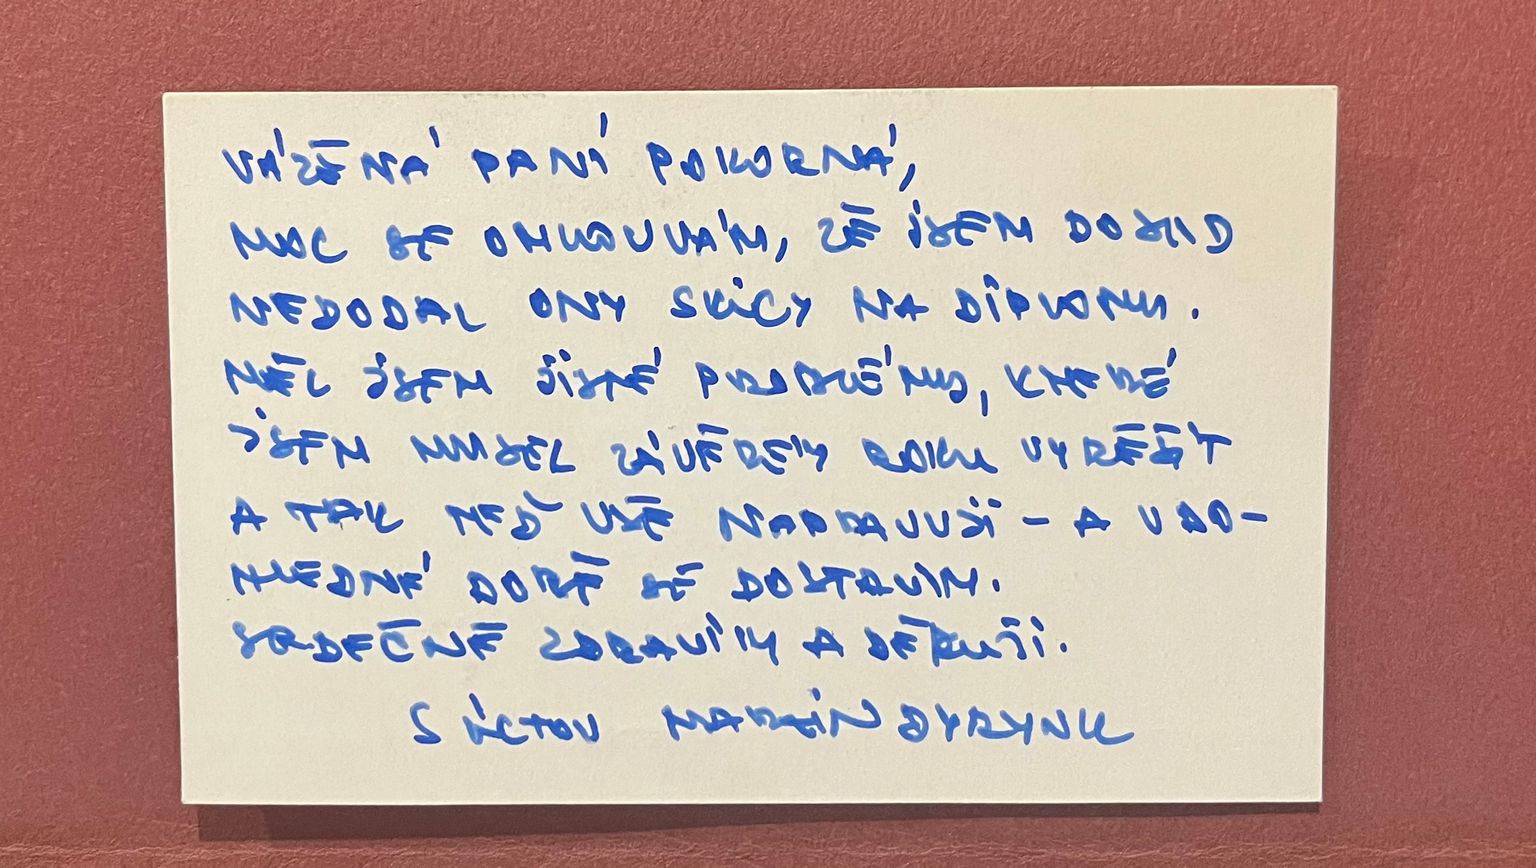 VÁŽENÁ PANÍ POKORNÁ,
MOC SE OMLOUVÁM, ŽE JSEM DOSUD
NEDODAL ONY SKICY NA DIPLOMU.
MĚL JSEM JISTÉ PROBLÉMY, KTERÉ
JSEM MUSEL ZÁVĚREM ROKU VYŘEŠIT
A TAK TEĎ VŠE NAPRAVUJI – A V DO-
HLEDNÉ DOBĚ SE DOSTAVÍM.
SRDEČNĚ ZDRAVÍM A DĚKUJI.
S ÚCTOU MARTIN DYRYNK